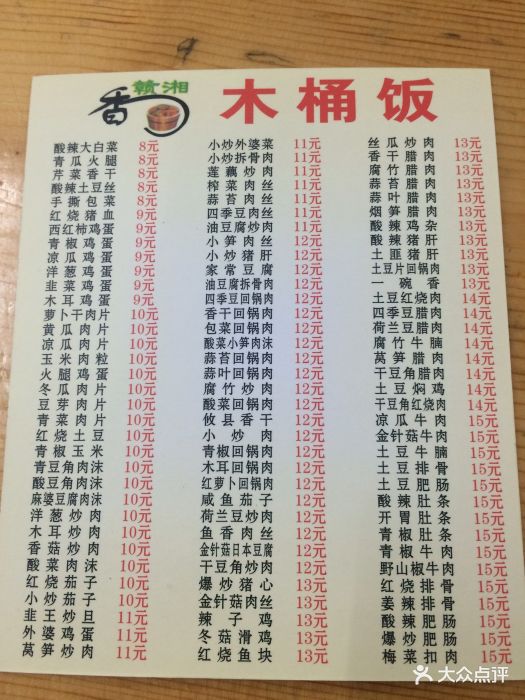 赣湘
香
木桶饭
酸辣大白菜 8元
青瓜火腿 8元
芹菜香干 8元
酸辣土豆丝 8元
手撕包菜 8元
红烧猪血 9元
西红柿鸡蛋 9元
青椒鸡蛋 9元
凉瓜鸡蛋 9元
洋葱鸡蛋 9元
韭菜鸡蛋 9元
木耳鸡蛋 9元
萝卜干肉片 10元
黄瓜肉片 10元
凉瓜肉片 10元
玉米肉粒 10元
火腿鸡蛋 10元
冬瓜肉片 10元
豆芽肉片 10元
青菜肉片 10元
红烧土豆 10元
青椒玉米 10元
青豆角肉沫 10元
酸豆角肉沫 10元
麻婆豆腐肉沫 10元
洋葱炒肉 10元
木耳炒肉 10元
香菇炒肉 10元
酸菜肉沫 10元
红烧茄子 10元
小炒茄子 10元
韭王炒旦 11元
外婆鸡蛋 11元
莴笋炒肉 11元
小炒外婆菜 11元
小炒拆骨肉 11元
莲藕炒肉 11元
榨菜肉丝 11元
蒜苔肉丝 11元
四季豆肉丝 11元
油豆腐炒肉 11元
小笋肉丝 12元
小炒猪肝 12元
家常豆腐 12元
油豆腐拆骨肉 12元
四季豆回锅肉 12元
香干回锅肉 12元
包菜回锅肉 12元
酸菜小笋肉沫 12元
蒜苔回锅肉 12元
蒜叶回锅肉 12元
腐竹炒肉 12元
酸菜回锅肉 12元
攸县香干 12元
小炒肉 12元
青椒回锅肉 12元
木耳回锅肉 12元
红萝卜回锅肉 12元
咸鱼茄子 12元
荷兰豆炒肉 12元
鱼香肉丝 12元
金针菇日本豆腐 12元
干豆角炒肉 12元
爆炒猪心 13元
金针菇肉丝 13元
辣子鸡 13元
冬菇滑鸡 13元
红烧鱼块 13元
丝瓜炒肉 13元
香干腊肉 13元
腐竹腊肉 13元
蒜苔腊肉 13元
烟笋腊肉 13元
酸辣鸡杂 13元
酸辣猪肝 13元
土匪猪肝 13元
土豆片回锅肉 13元
一碗香 13元
土豆红烧肉 14元
四季豆腊肉 14元
荷兰豆腊肉 14元
腐竹牛腩 14元
莴笋腊肉 14元
干豆角腊肉 14元
土豆焖鸡 14元
干豆角红烧肉 14元
凉瓜牛肉 15元
金针菇牛肉 15元
土豆牛腩 15元
土豆排骨 15元
土豆肥肠 15元
酸辣肚条 15元
开胃肚条 15元
青椒肚片 15元
青椒牛肉 15元
野山椒牛肉 15元
红烧排骨 15元
姜辣排骨 15元
酸辣肥肠 15元
爆炒肥肠 15元
梅菜扣肉 15元
大众点评